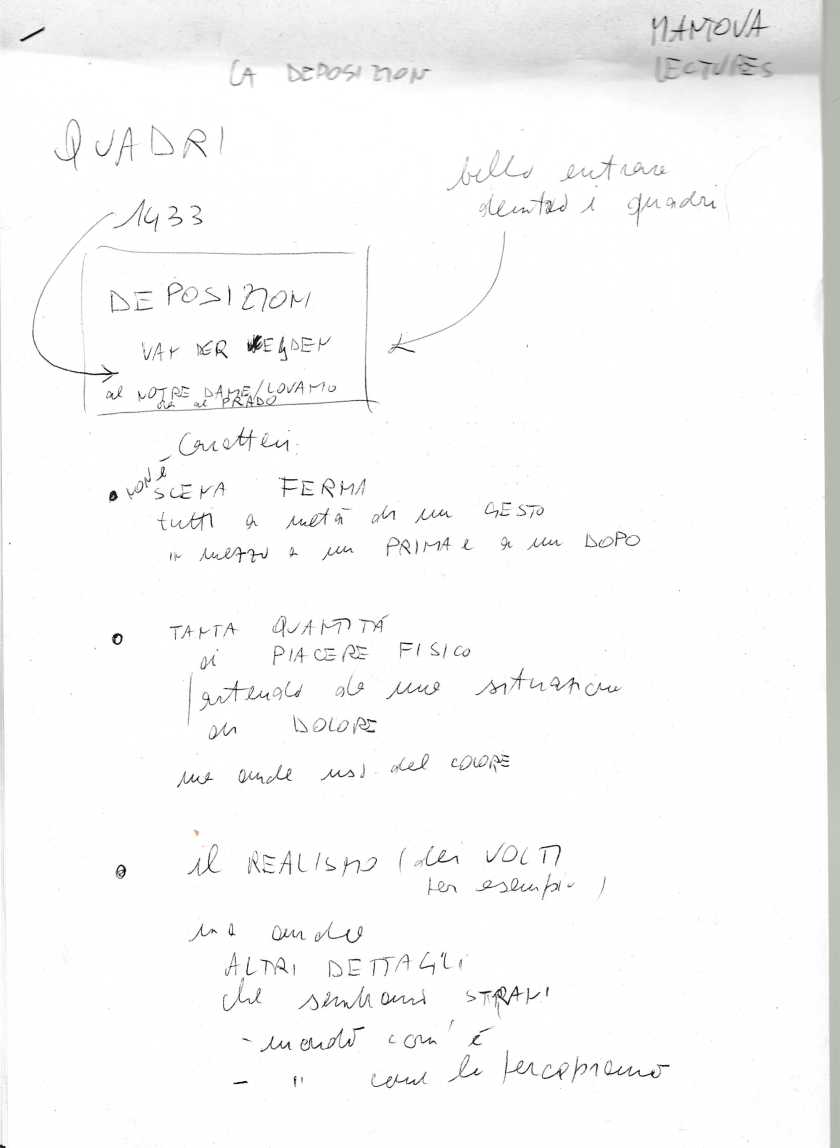 MANTOVA
LECTURES
LA DEPOSIZION
QUADRI
bello entrare
dentro i quadri
1433
DEPOSIZION
VAN DER WEYDEN
al NOTRE DAME/LOVANIO
ora al PRADO
Caratteri:
• NON È SCENA FERMA
tutti a metà di un GESTO
in mezzo a un PRIMA e a un DOPO
• TANTA QUANTITÀ
di PIACERE FISICO
partendo da una situazione
di DOLORE
ma anche uso del COLORE
• il REALISMO (dei VOLTI
per esempio)
ma anche
ALTRI DETTAGLI
che sembrano STRANI
- mondo com'è
- " come lo percepiamo